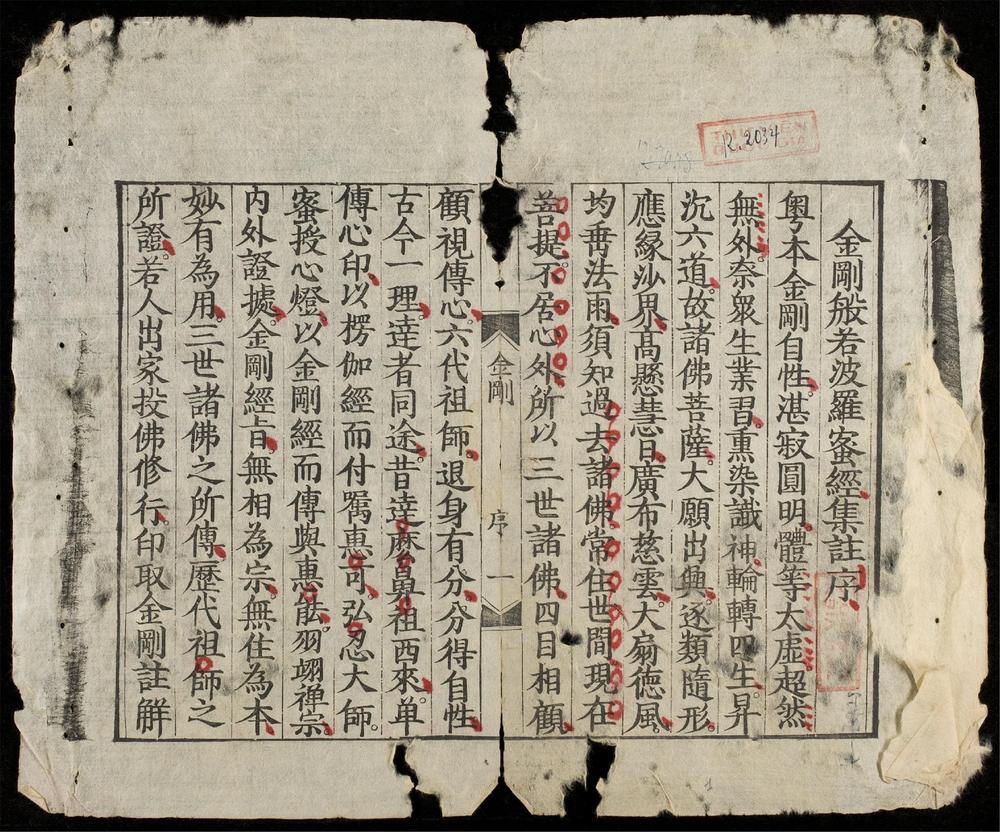 R.2034
金剛般若波羅蜜經集註序
粵本金剛自性湛寂圓明體等太虛超然
無外柰眾生業習熏染識神輪轉四生昇
沉六道故諸佛菩薩大願出興逐類隨形
應緣沙界髙懸慧日廣布慈雲大扇德風
均垂法雨須知過去諸佛常住世間現在
菩提不居心外所以三世諸佛四目相顧
金剛 序 一
顧視傳心六代祖師退身有分分得自性
古今一理達者同途昔達磨鼻祖西來单
傳心印以楞伽經而付囑惠可弘忍大師
蜜授心燈以金剛經而傳與惠能羽翊禅宗
内外證據金剛經旨無相為宗無住為本
妙有為用三世諸佛之所傳歷代祖師之
所證若人出家投佛修行印取金剛註解